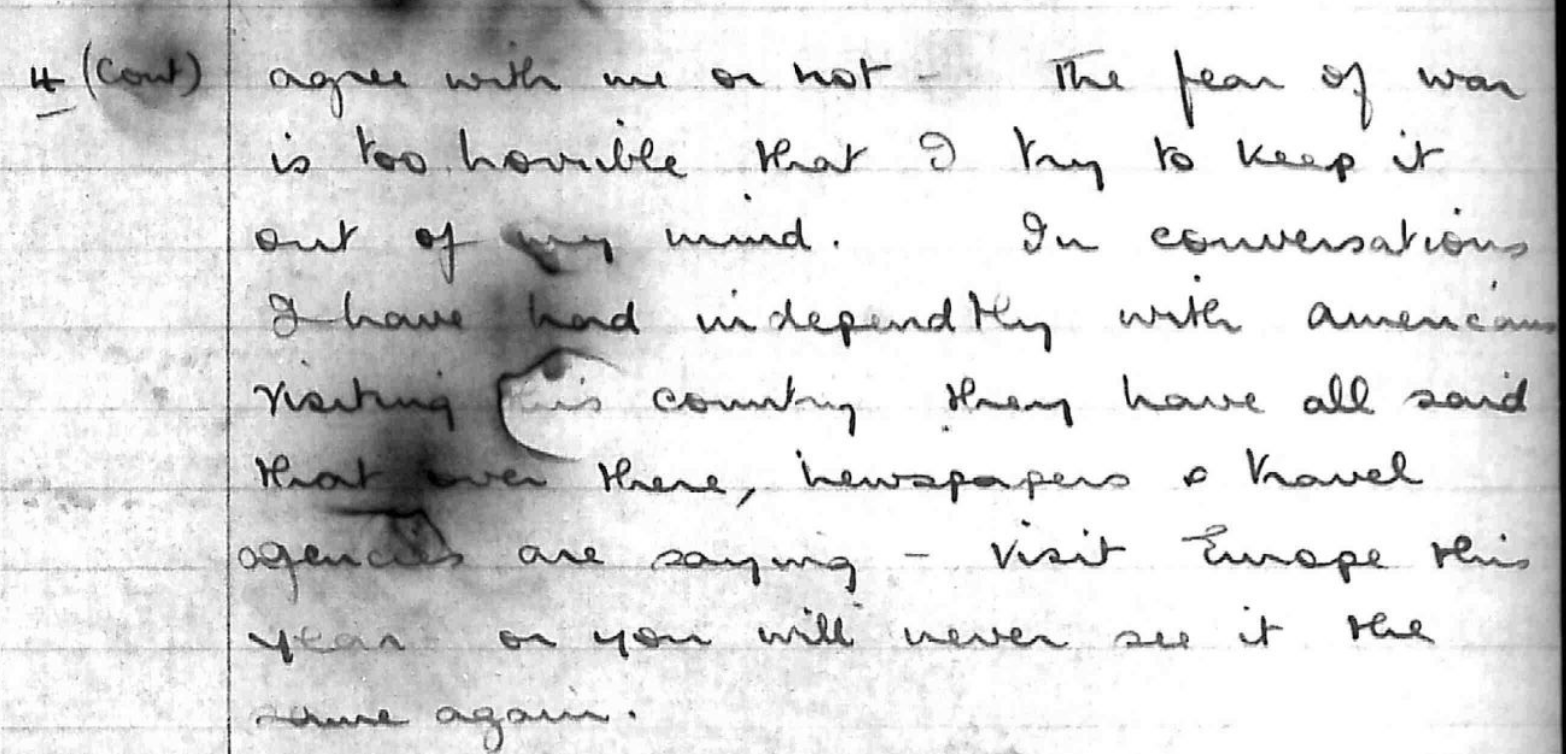 4 (Cont) agree with me or not - The fear of war
is too horrible that I try to keep it
out of my mind. In conversations
I have had independtly with americans
visiting this country they have all said
that over there, newspapers & travel
agencies are saying - visit Europe this
year or you will never see it the
same again.